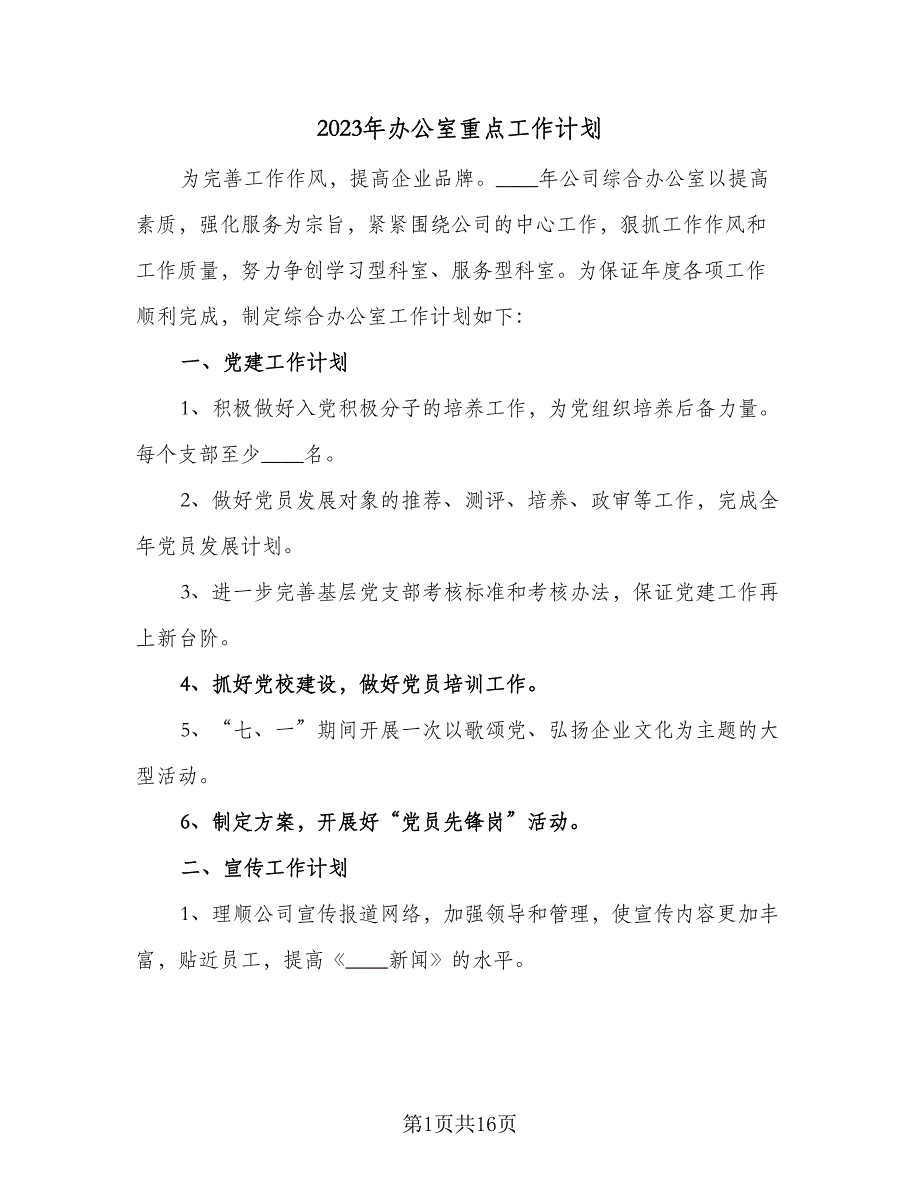 2023年办公室重点工作计划
为完善工作作风，提高企业品牌。____年公司综合办公室以提高
素质，强化服务为宗旨，紧紧围绕公司的中心工作，狠抓工作作风和
工作质量，努力争创学习型科室、服务型科室。为保证年度各项工作
顺利完成，制定综合办公室工作计划如下：
一、党建工作计划
1、积极做好入党积极分子的培养工作，为党组织培养后备力量。
每个支部至少____名。
2、做好党员发展对象的推荐、测评、培养、政审等工作，完成全
年党员发展计划。
3、进一步完善基层党支部考核标准和考核办法，保证党建工作再
上新台阶。
4、抓好党校建设，做好党员培训工作。
5、“七、一”期间开展一次以歌颂党、弘扬企业文化为主题的大
型活动。
6、制定方案，开展好“党员先锋岗”活动。
二、宣传工作计划
1、理顺公司宣传报道网络，加强领导和管理，使宣传内容更加丰
富，贴近员工，提高《____新闻》的水平。
第1页共16页